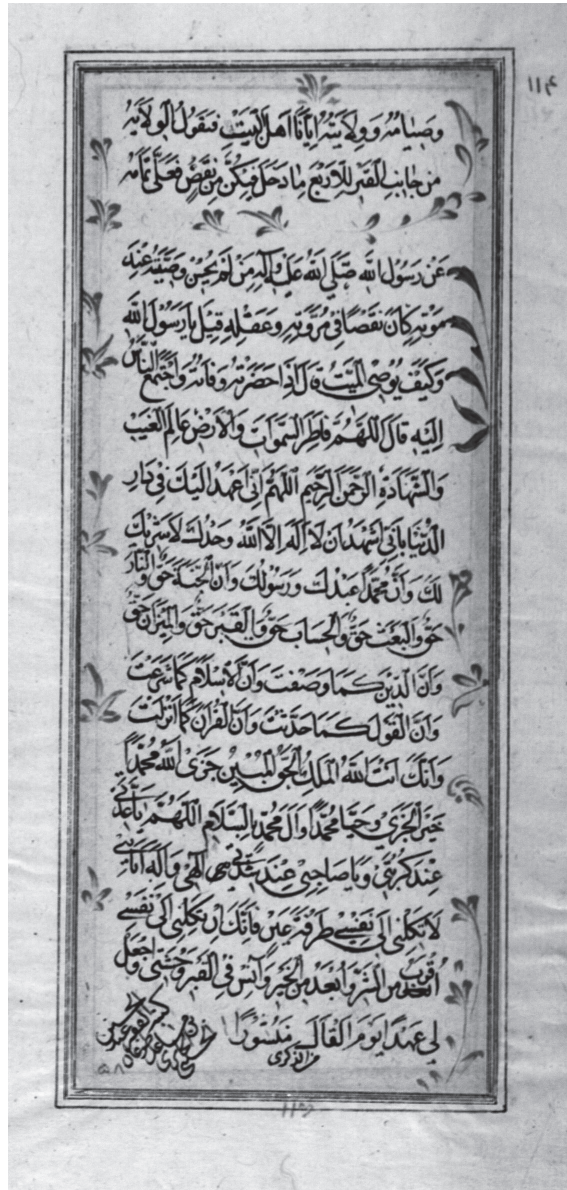 ١١٤
وصيامه وولايته ايانا اهل البيت فتقول الولاية
من جانب القبر للاربع ما دخل فيكن من نقص فعلي تمامه
عن رسول الله صلي الله عليه وآله من لم يحسن وصيته عند
موته كان نقصا في مروته وعقله قيل يا رسول الله
وكيف يوصي الميت قال اذا حضرته وفاته واجتمع الناس
اليه قال اللهم فاطر السموات والارض عالم الغيب
والشهادة الرحمن الرحيم اللهم اني اعهد اليك في دار
الدنيا باني اشهد ان لا اله الا الله وحدك لا شريك
لك وان محمدا عبدك ورسولك وان الجنة حق والنار
حق والبعث حق والحساب حق والقبر حق والميزان حق
وان الدين كما وصفت وان الاسلام كما شرعت
وان القول كما حدثت وان القرآن كما انزلت
وانك انت الله الملك الحق المبين جزى الله محمدا
خير الجزي وحيا محمدا وآل محمد بالسلام اللهم يا عدتي
عند كربتي ويا صاحبي عند شدتي الهي واله آبائي
لا تكلني الى نفسي طرفة عين فانك ان تكلني الى نفسي
اقرب من الشر وابعد من الخير وآنس في القبر وحشتي واجعل
لي عهدا يوم القاك منشورا
من الذكرى